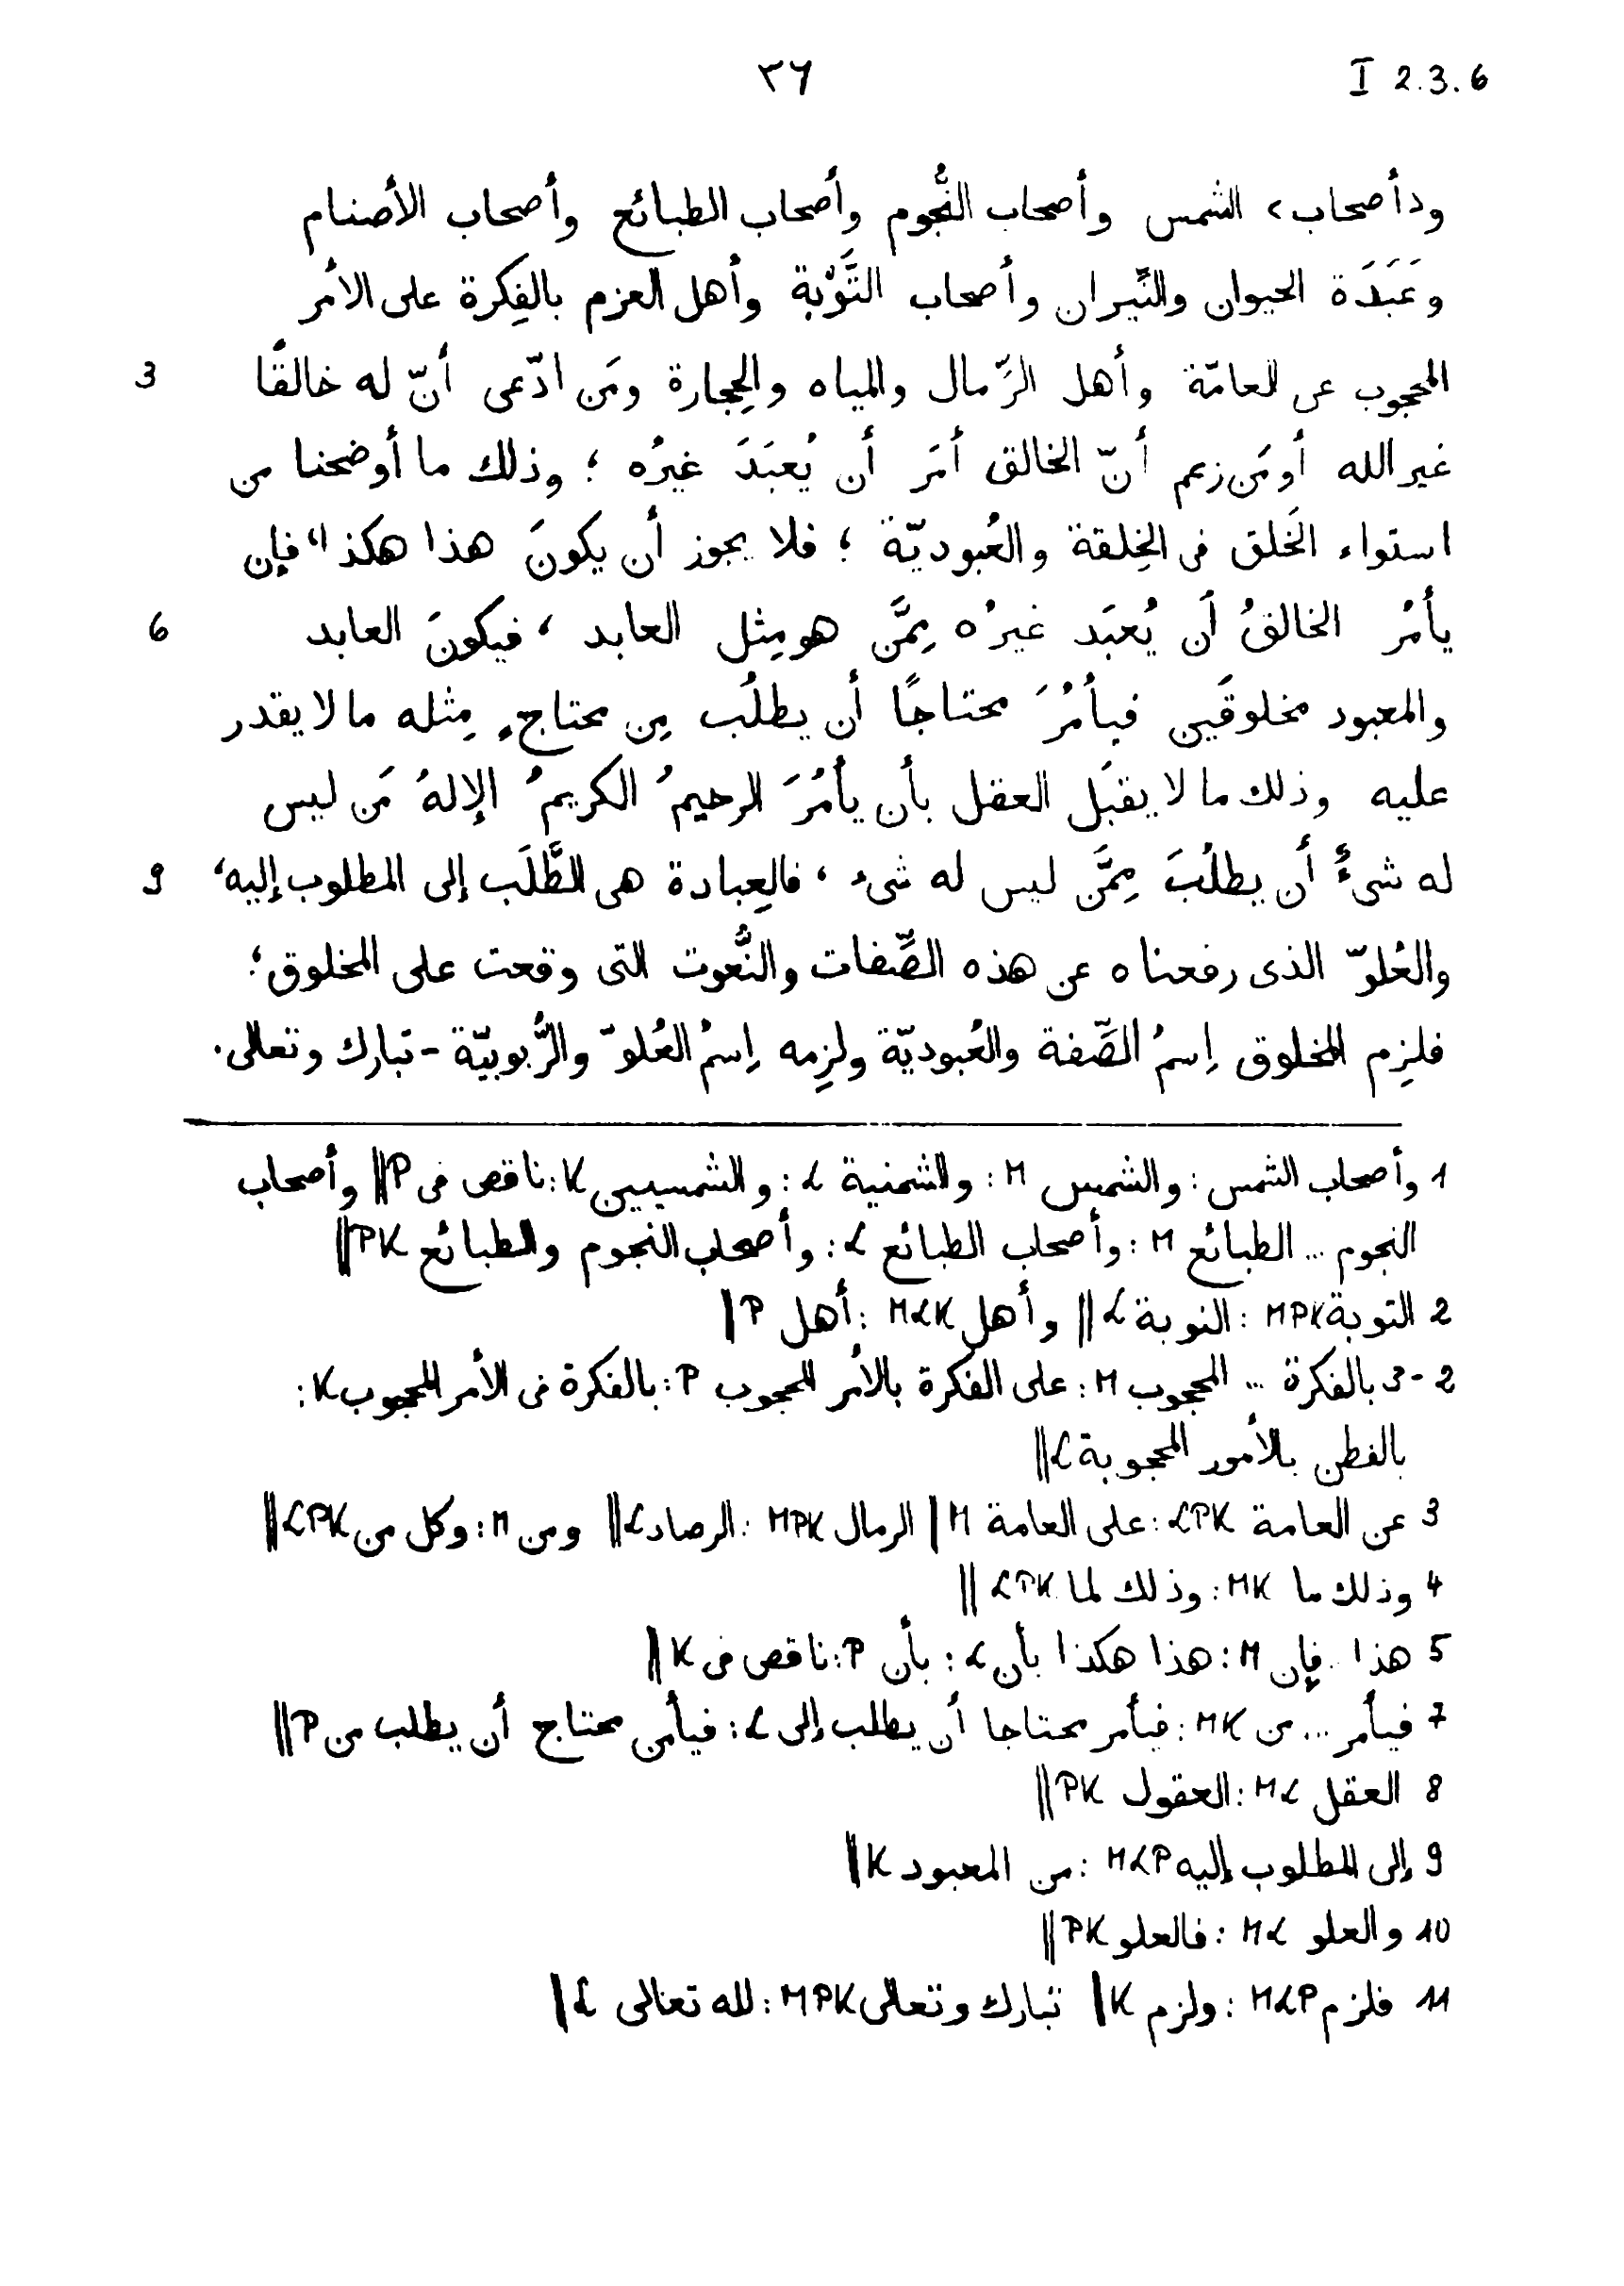 I 2.3.6
٣٦
و<أصحاب> الشمس وأصحاب النُّجوم وأصحاب الطبائع وأصحاب الأصنام
وعَبَدَة الحيوان والنِّيران وأصحاب التَّوْبة وأهل العزم بالفِكرة على الأمر
المحجوب عن العامّة وأهل الرِّمال والمياه والحِجارة ومَن ادّعى أنّ له خالقًا 3
غير الله أو مَن زعم أنّ الخالق أمَر أن يُعبَدَ غيرُه ؛ وذلك ما أوضحنا من
استواء الخَلق فى الخِلقة والعُبوديّة ؛ فلا يجوز أن يكونَ هذا هكذا، فإن
يأمُر الخالقُ أن يُعبَد غيرُه مِمَّن هو مِثل العابد ، فيكونَ العابد 6
والمعبود مخلوقَين فيأمُرَ محتاجًا أن يطلُب مِن محتاجٍ مِثله ما لا يقدر
عليه وذلك ما لا يقبَل العقل بأن يأمُرَ الرحيمُ الكريمُ الإلهُ مَن ليس
له شىءٌ أن يطلُبَ مِمَّن ليس له شىء ، فالعِبادة هى الطَّلَب إلى المطلوب إليه، 9
والعُلوّ الذى رفعناه عن هذه الصِّفات والنُّعوت التى وقعت على المخلوق؛
فلزِم المخلوق إسمُ الصِّفة والعُبوديّة ولزِمه إسمُ العُلوّ والرُّبوبيّة - تبارك وتعالى.
1 وأصحاب الشمس : والشمس M : والشمنية L : والشمسيين K : ناقص فى P || وأصحاب
النجوم ... الطبائع M : وأصحاب الطبائع L : وأصحاب النجوم والطبائع PK ||
2 التوبة MPK : النوبة L || وأهل MLK : أهل P |
2-3 بالفكرة ... المحجوب M : على الفكرة بالأمر المحجوب P : بالفكرة فى الأمر المحجوب K :
بالفطن بالأمور المحجوبة L ||
3 عن العامة LPK : على العامة M | الرمال MPK : الرصاد L || ومن M : وكل من LPK ||
4 وذلك ما MK : وذلك لما LPK ||
5 هذا .. فإن M : هذا هكذا بأن L : بأن P : ناقص فى K ||
7 فيأمر ... من MK : فيأمر محتاجا أن يطلب إلى L : فيأمن محتاج أن يطلب من P ||
8 العقل ML : العقول PK ||
9 إلى المطلوب إليه MLP : من المعبود K ||
10 والعلو ML : فالعلو PK ||
11 فلزم MLP : ولزم K | تبارك وتعالى MPK : لله تعالى L |